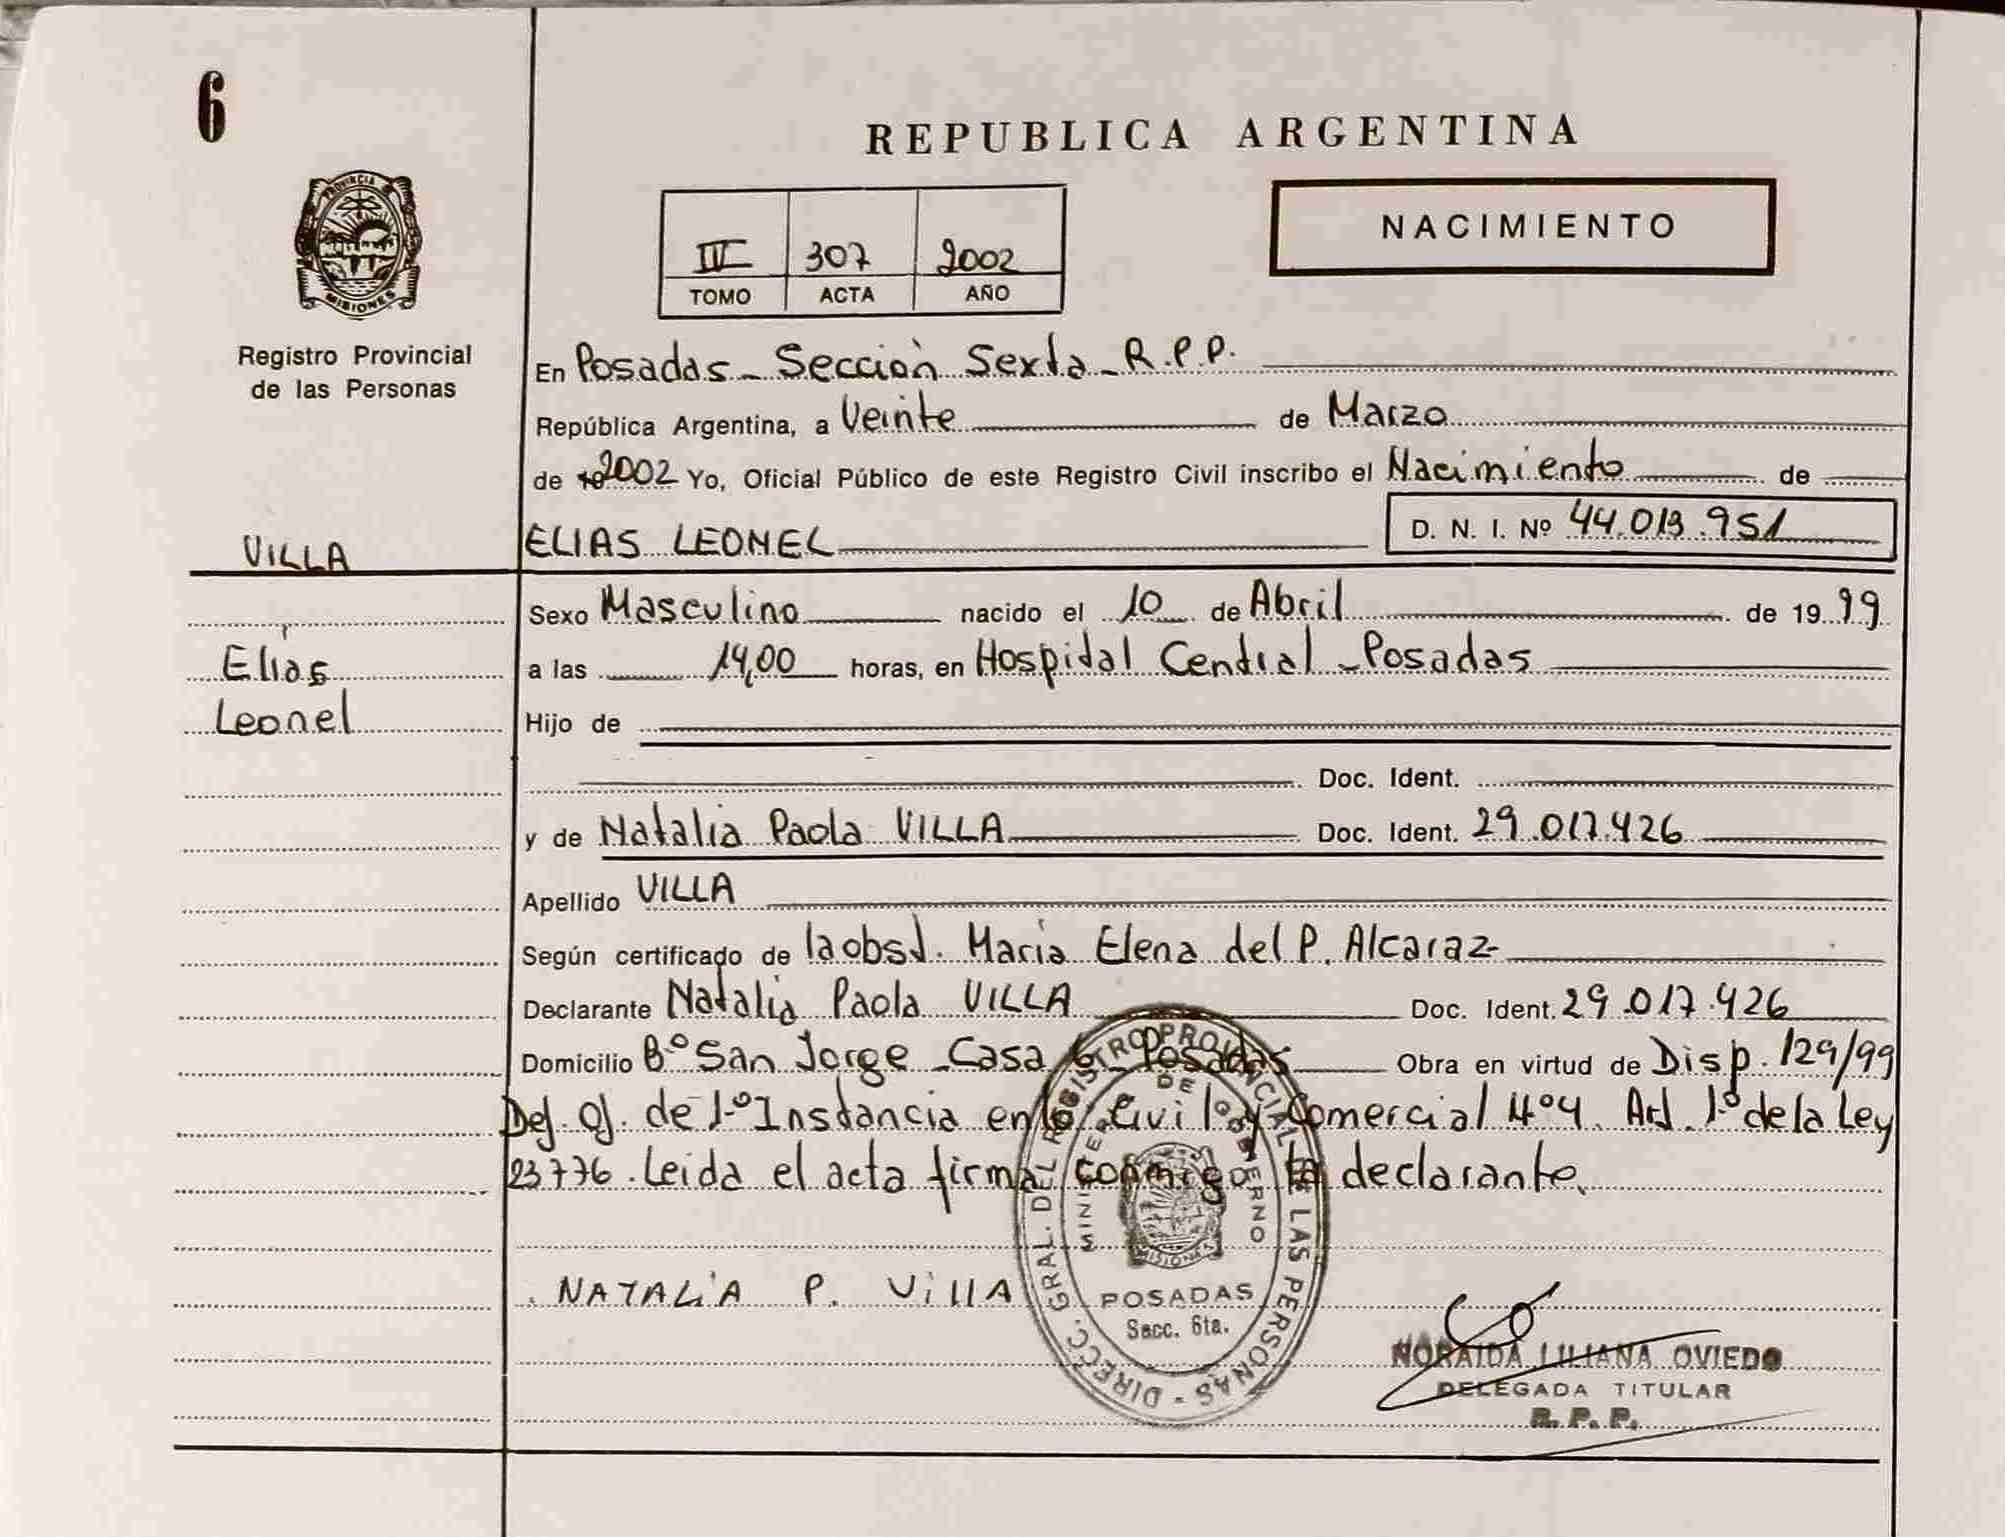 6
REPUBLICA ARGENTINA
NACIMIENTO
IV 307 2002
TOMO ACTA AÑO
PROVINCIA
MISIONES
Registro Provincial
de las Personas
En Posadas - Sección Sexta - R.P.P.
República Argentina, a Veinte de Marzo
de 19 2002 Yo, Oficial Público de este Registro Civil inscribo el Nacimiento de
VILLA
ELIAS LEONEL D. N. I. Nº 44.013.951
Sexo Masculino nacido el 10 de Abril de 19 99
Elias
a las 14,00 horas, en Hospital Central - Posadas
Leonel
Hijo de
Doc. Ident.
y de Natalia Paola VILLA Doc. Ident. 29.017.426
Apellido VILLA
Según certificado de la obst. Maria Elena del P. Alcaraz
Declarante Natalia Paola VILLA Doc. Ident. 29.017.426
Domicilio Bº San Jorge - Casa 6 - Posadas Obra en virtud de Disp. 129/99
Def. Of. de 1º Instancia en lo Civil y Comercial Nº4. Art. 1º de la Ley
23776. Leida el acta firma conmigo la declarante.
NATALiA P. VillA
DIRECC. GRAL. DEL REGISTRO PROVINCIAL DE LAS PERSONAS
MINISTERIO DE GOBIERNO
MISIONES
POSADAS
Secc. 6ta.
NORAIDA LILIANA OVIEDO
DELEGADA TITULAR
R. P. P.